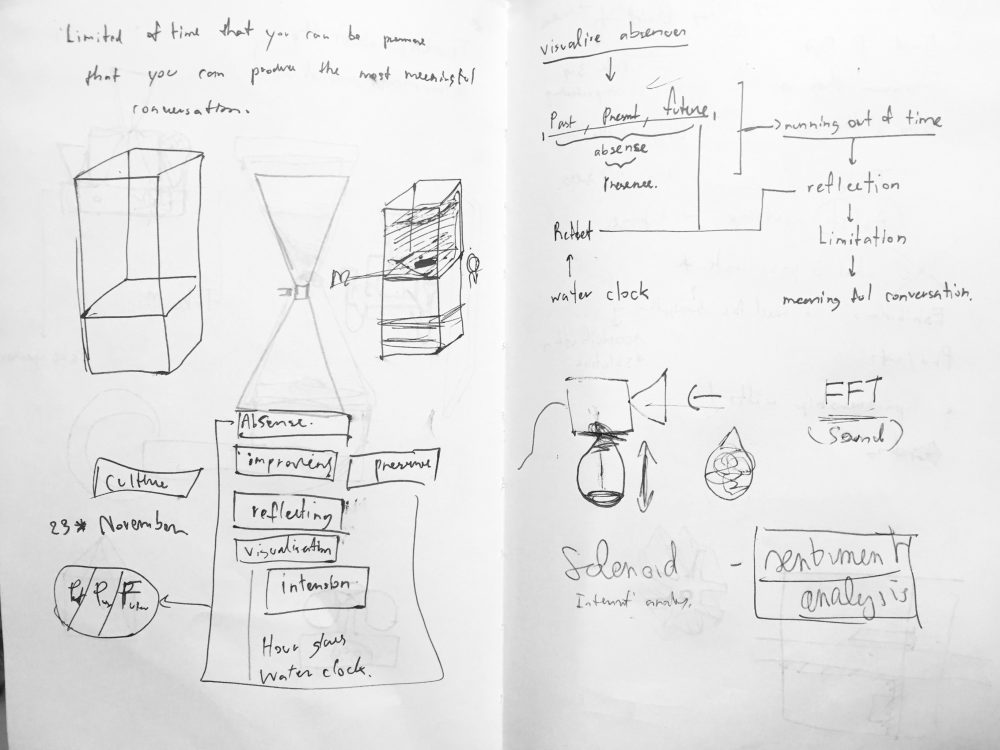 Limited of time that you can be
that you can produce the most meaningful
conversation.
Absense.
improving
presense
culture
reflecting
23* November
visualisation
intension
Hour glass
Water clock.
visualise absences
Past, Present, future,
absense
Presence.
running out of time
reflection
Limitation
meaningful conversation.
water clock
FFT
(Sound)
Solenoid - sentiment
analysis